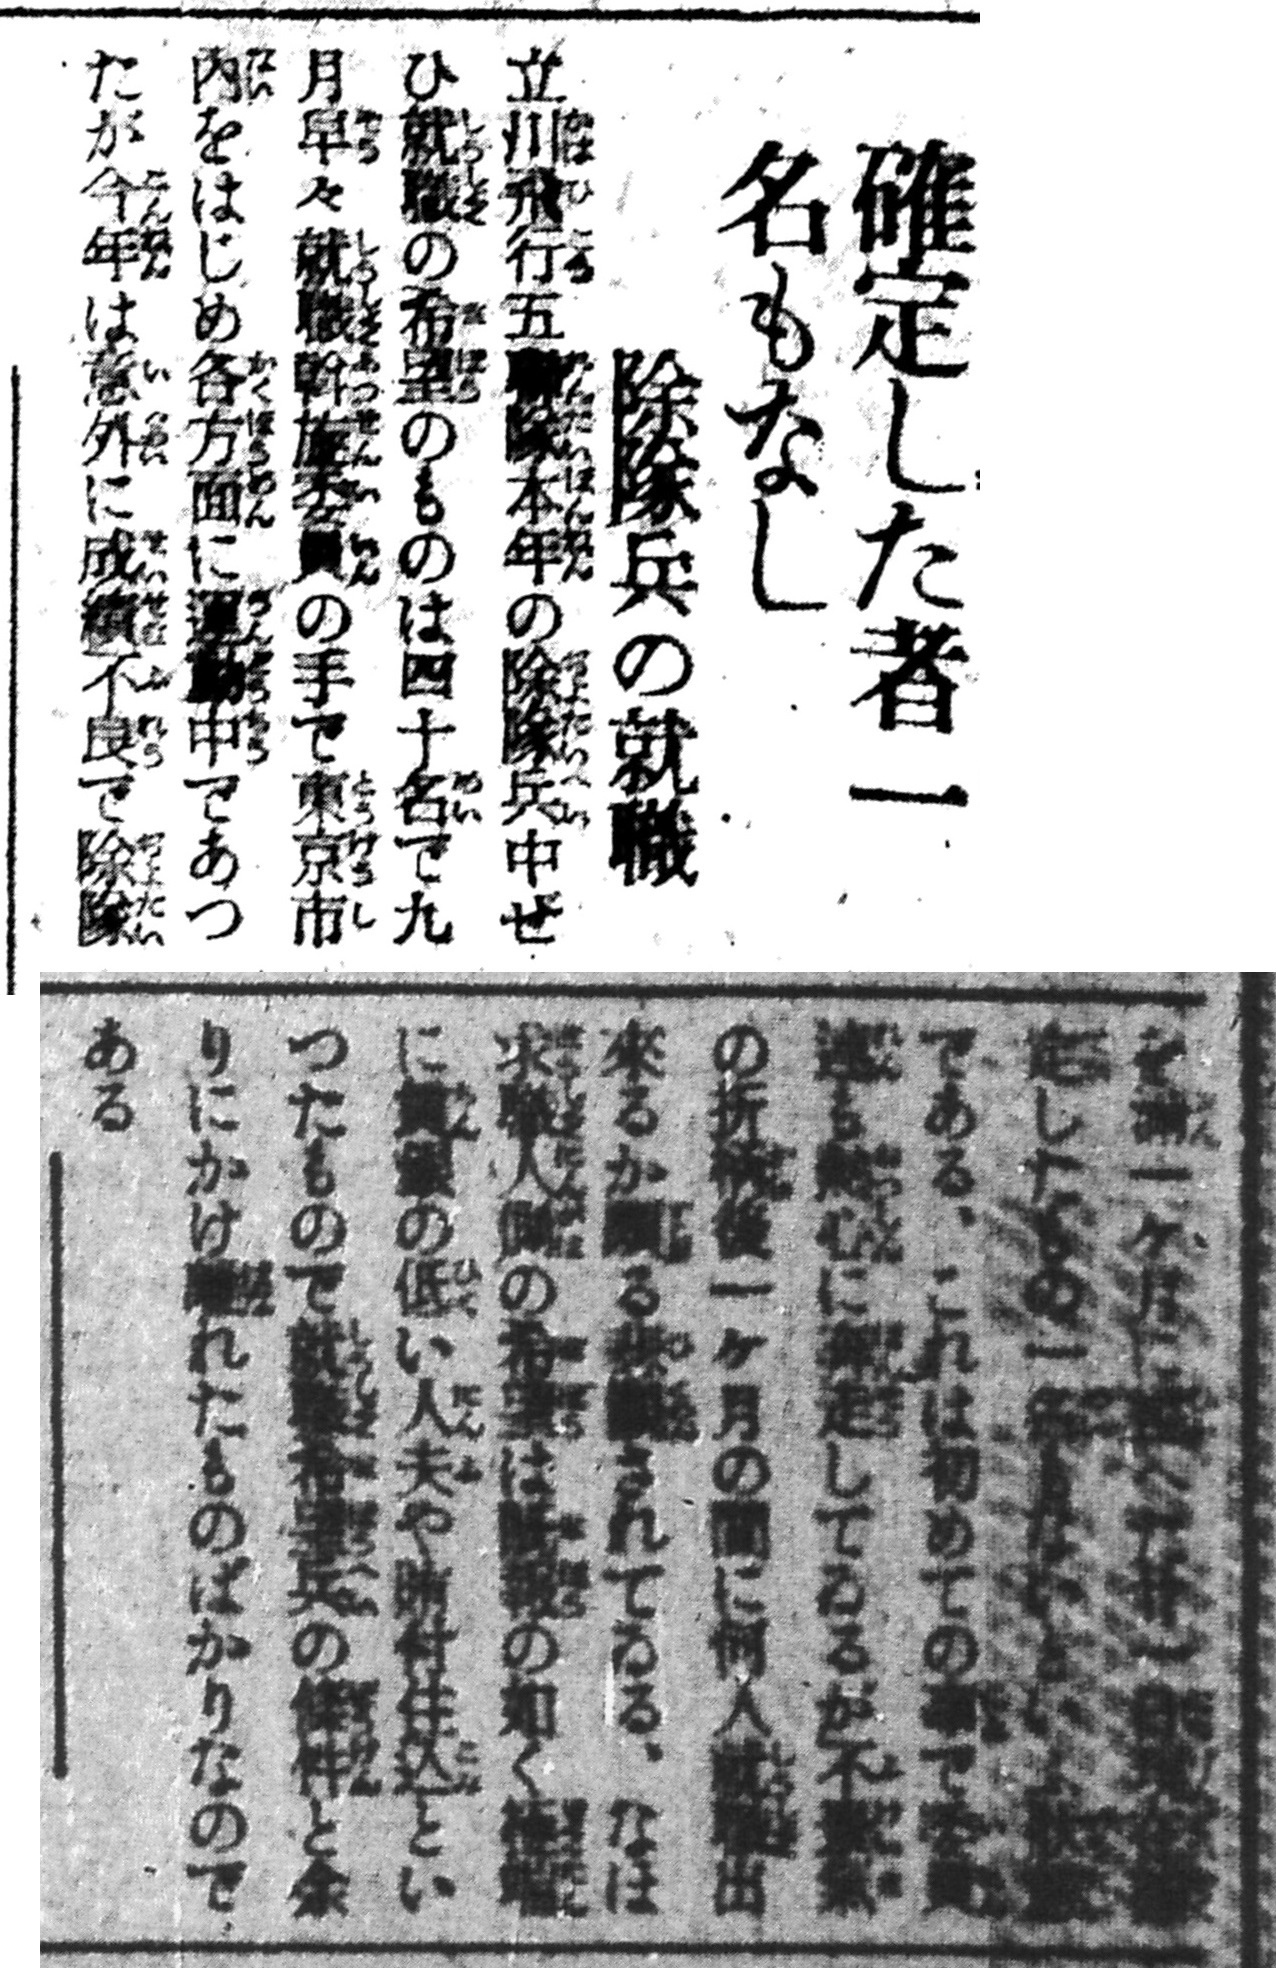 確定した者一
名もなし
除隊兵の就職
立川飛行五聯隊本年の除隊兵中ぜ
ひ就職の希望のものは四十名で九
月早々就職斡旋委員の手で東京市
内をはじめ各方面に運動中であつ
たが今年は意外に成績不良で除隊
を一ケ月に
定したもの一
である、これは初めての事で委員
連も熱心に奔走してゐるが不景氣
の折柄後一ケ月の間に何人就職出
來るか頗る悲觀されてゐる、なほ
求職人側の希望は除隊の如く極端
に賃銀の低い人夫や賄付住込とい
つたもので就職希望兵の條件と余
りにかけ離れたものばかりなので
ある